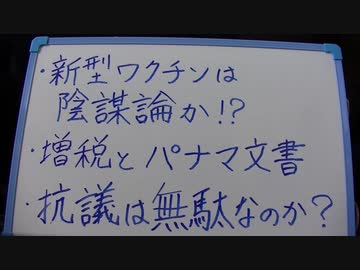 ・新型ワクチンは
陰謀論か!?
・増税とパナマ文書
・抗議は無駄なのか?